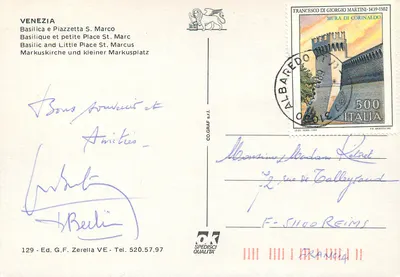 VENEZIA
Basilica e Piazzetta S. Marco
Basilique et petite Place St. Marc
Basilic and Little Place St. Marcus
Markuskirche und kleiner Markusplatz
FRANCESCO DI GIORGIO MARTINI · 1439-1502
MURA DI CORINALDO
500
ITALIA
ALBAREDO
Bons souvenir et
Amitiés
D Berlin
CO.GRAF s.r.l.
Monsieur Madame
72, rue de Talleyrand
F-51100 REIMS
FRANCIA
OK
SPEDISCI
QUALITÀ
129 - Ed. G.F. Zerella VE - Tel. 520.57.97